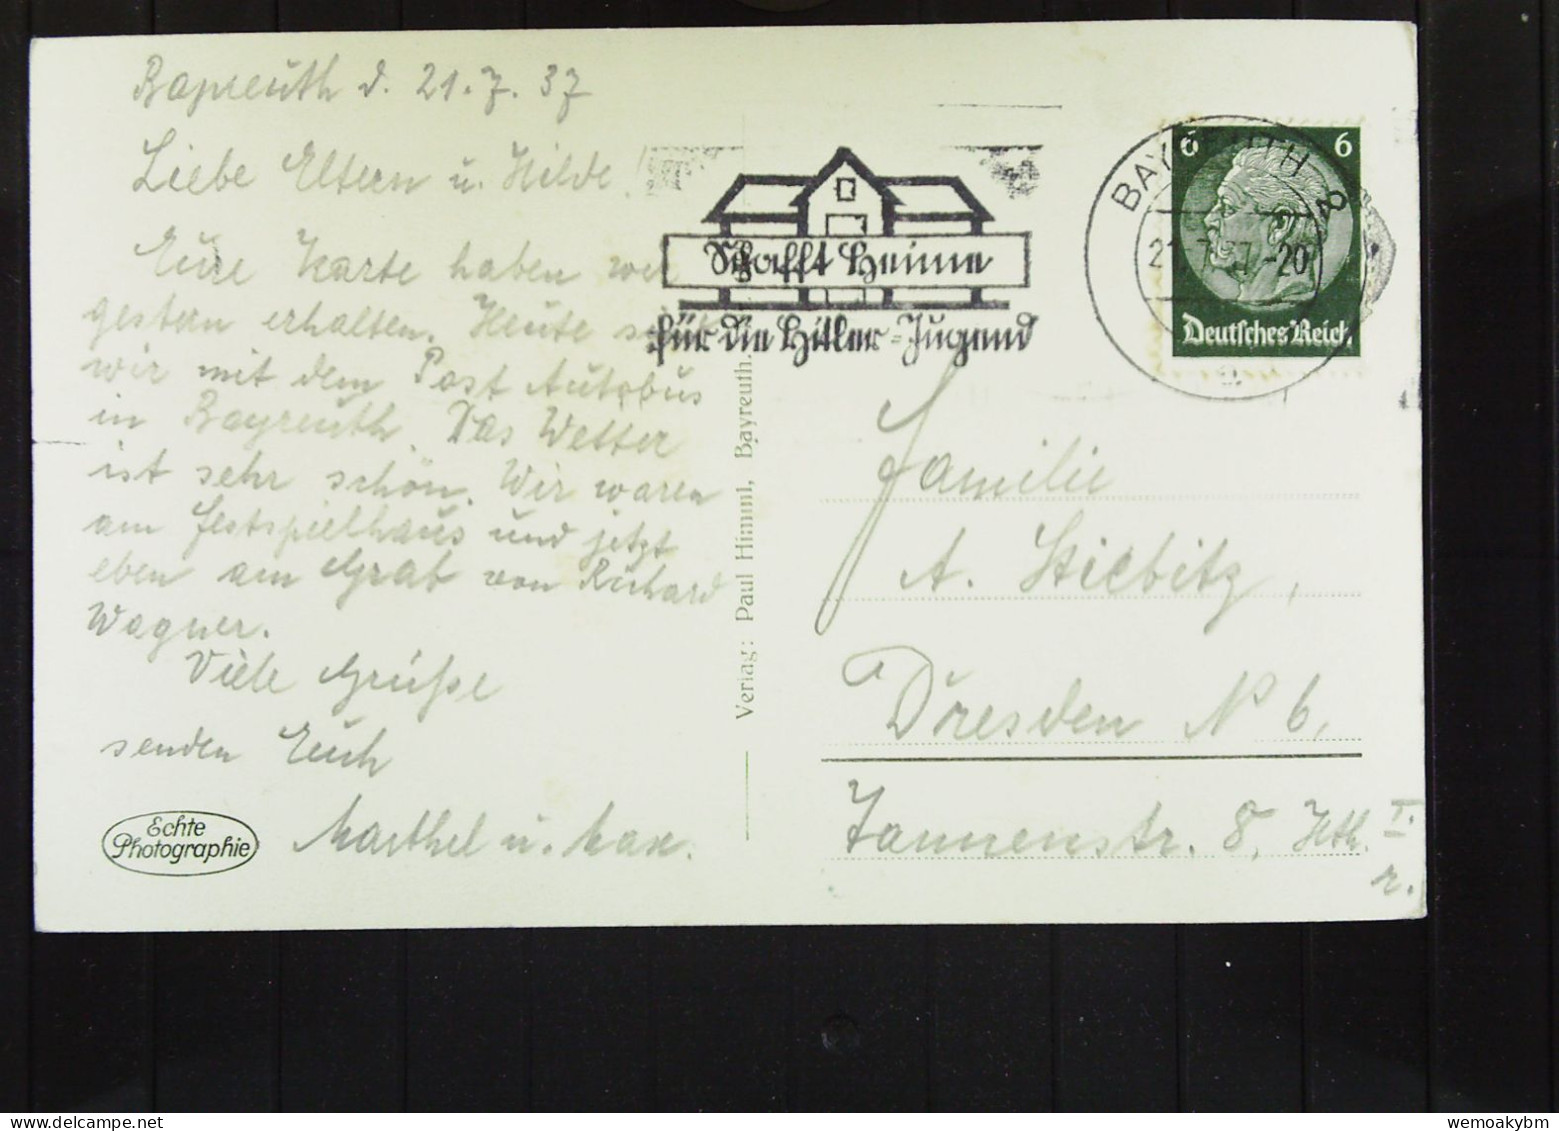 Bayreuth d. 21.7.37
Liebe Eltern u. Hilde!
Eure Karte haben wir
gestern erhalten. Heute sind
wir mit dem Post Autobus
in Bayreuth. Das Wetter
ist sehr schön. Wir waren
am Festspielhaus und jetzt
eben am Grab von Richard
Wagner.
Viele Grüße
senden Euch
Marthel u. Max.
Echte
Photographie
Verlag: Paul Himml, Bayreuth.
Schafft Heime
für die Hitler-Jugend
BAYREUTH 2
21.7.37.-20
6 6
Deutsches Reich
Familie
A. Stiebitz,
Dresden N 6,
Tannenstr. 8, Hth. I.
r.
wemoakybm